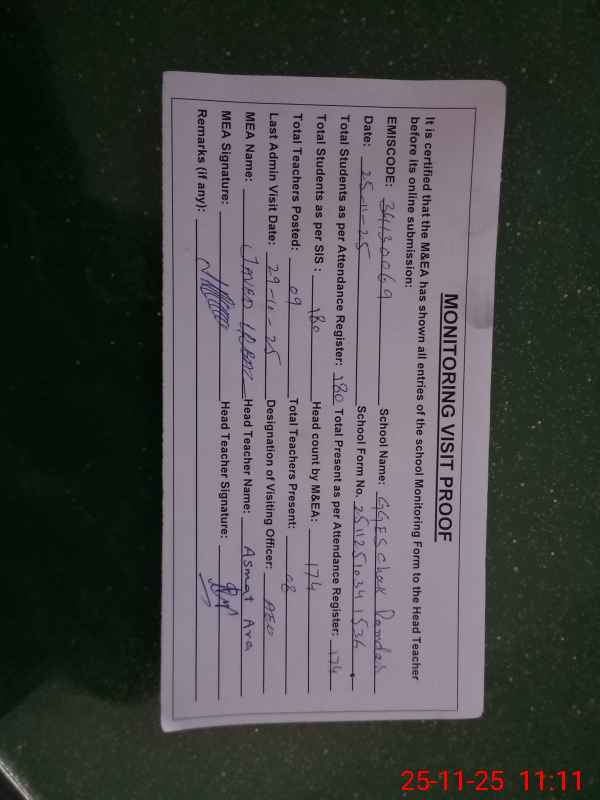 MONITORING VISIT PROOF
It is certified that the M&EA has shown all entries of the school Monitoring Form to the Head Teacher
before its online submission:
EMISCODE: 34130069 School Name: GGES Chak
Date: 25-11-25 School Form No. 25112510341536
Total Students as per Attendance Register: 180 Total Present as per Attendance Register: 174
Total Students as per SIS : 180 Head count by M&EA: 174
Total Teachers Posted: 09 Total Teachers Present: 08
Last Admin Visit Date: 29-11-25 Designation of Visiting Officer: AEO
MEA Name: JAVED IQBAL Head Teacher Name: Asmat Ara
MEA Signature: Head Teacher Signature:
Remarks (if any):
25-11-25 11:11